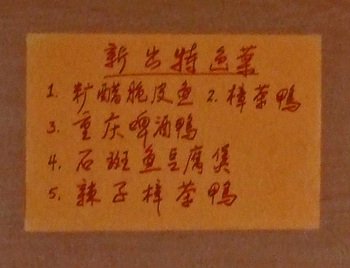 新出特色菜
1. 籵醋脆皮鱼 2. 樟茶鸭
3. 重庆啤酒鸭
4. 石斑鱼豆腐煲
5. 辣子樟茶鸭